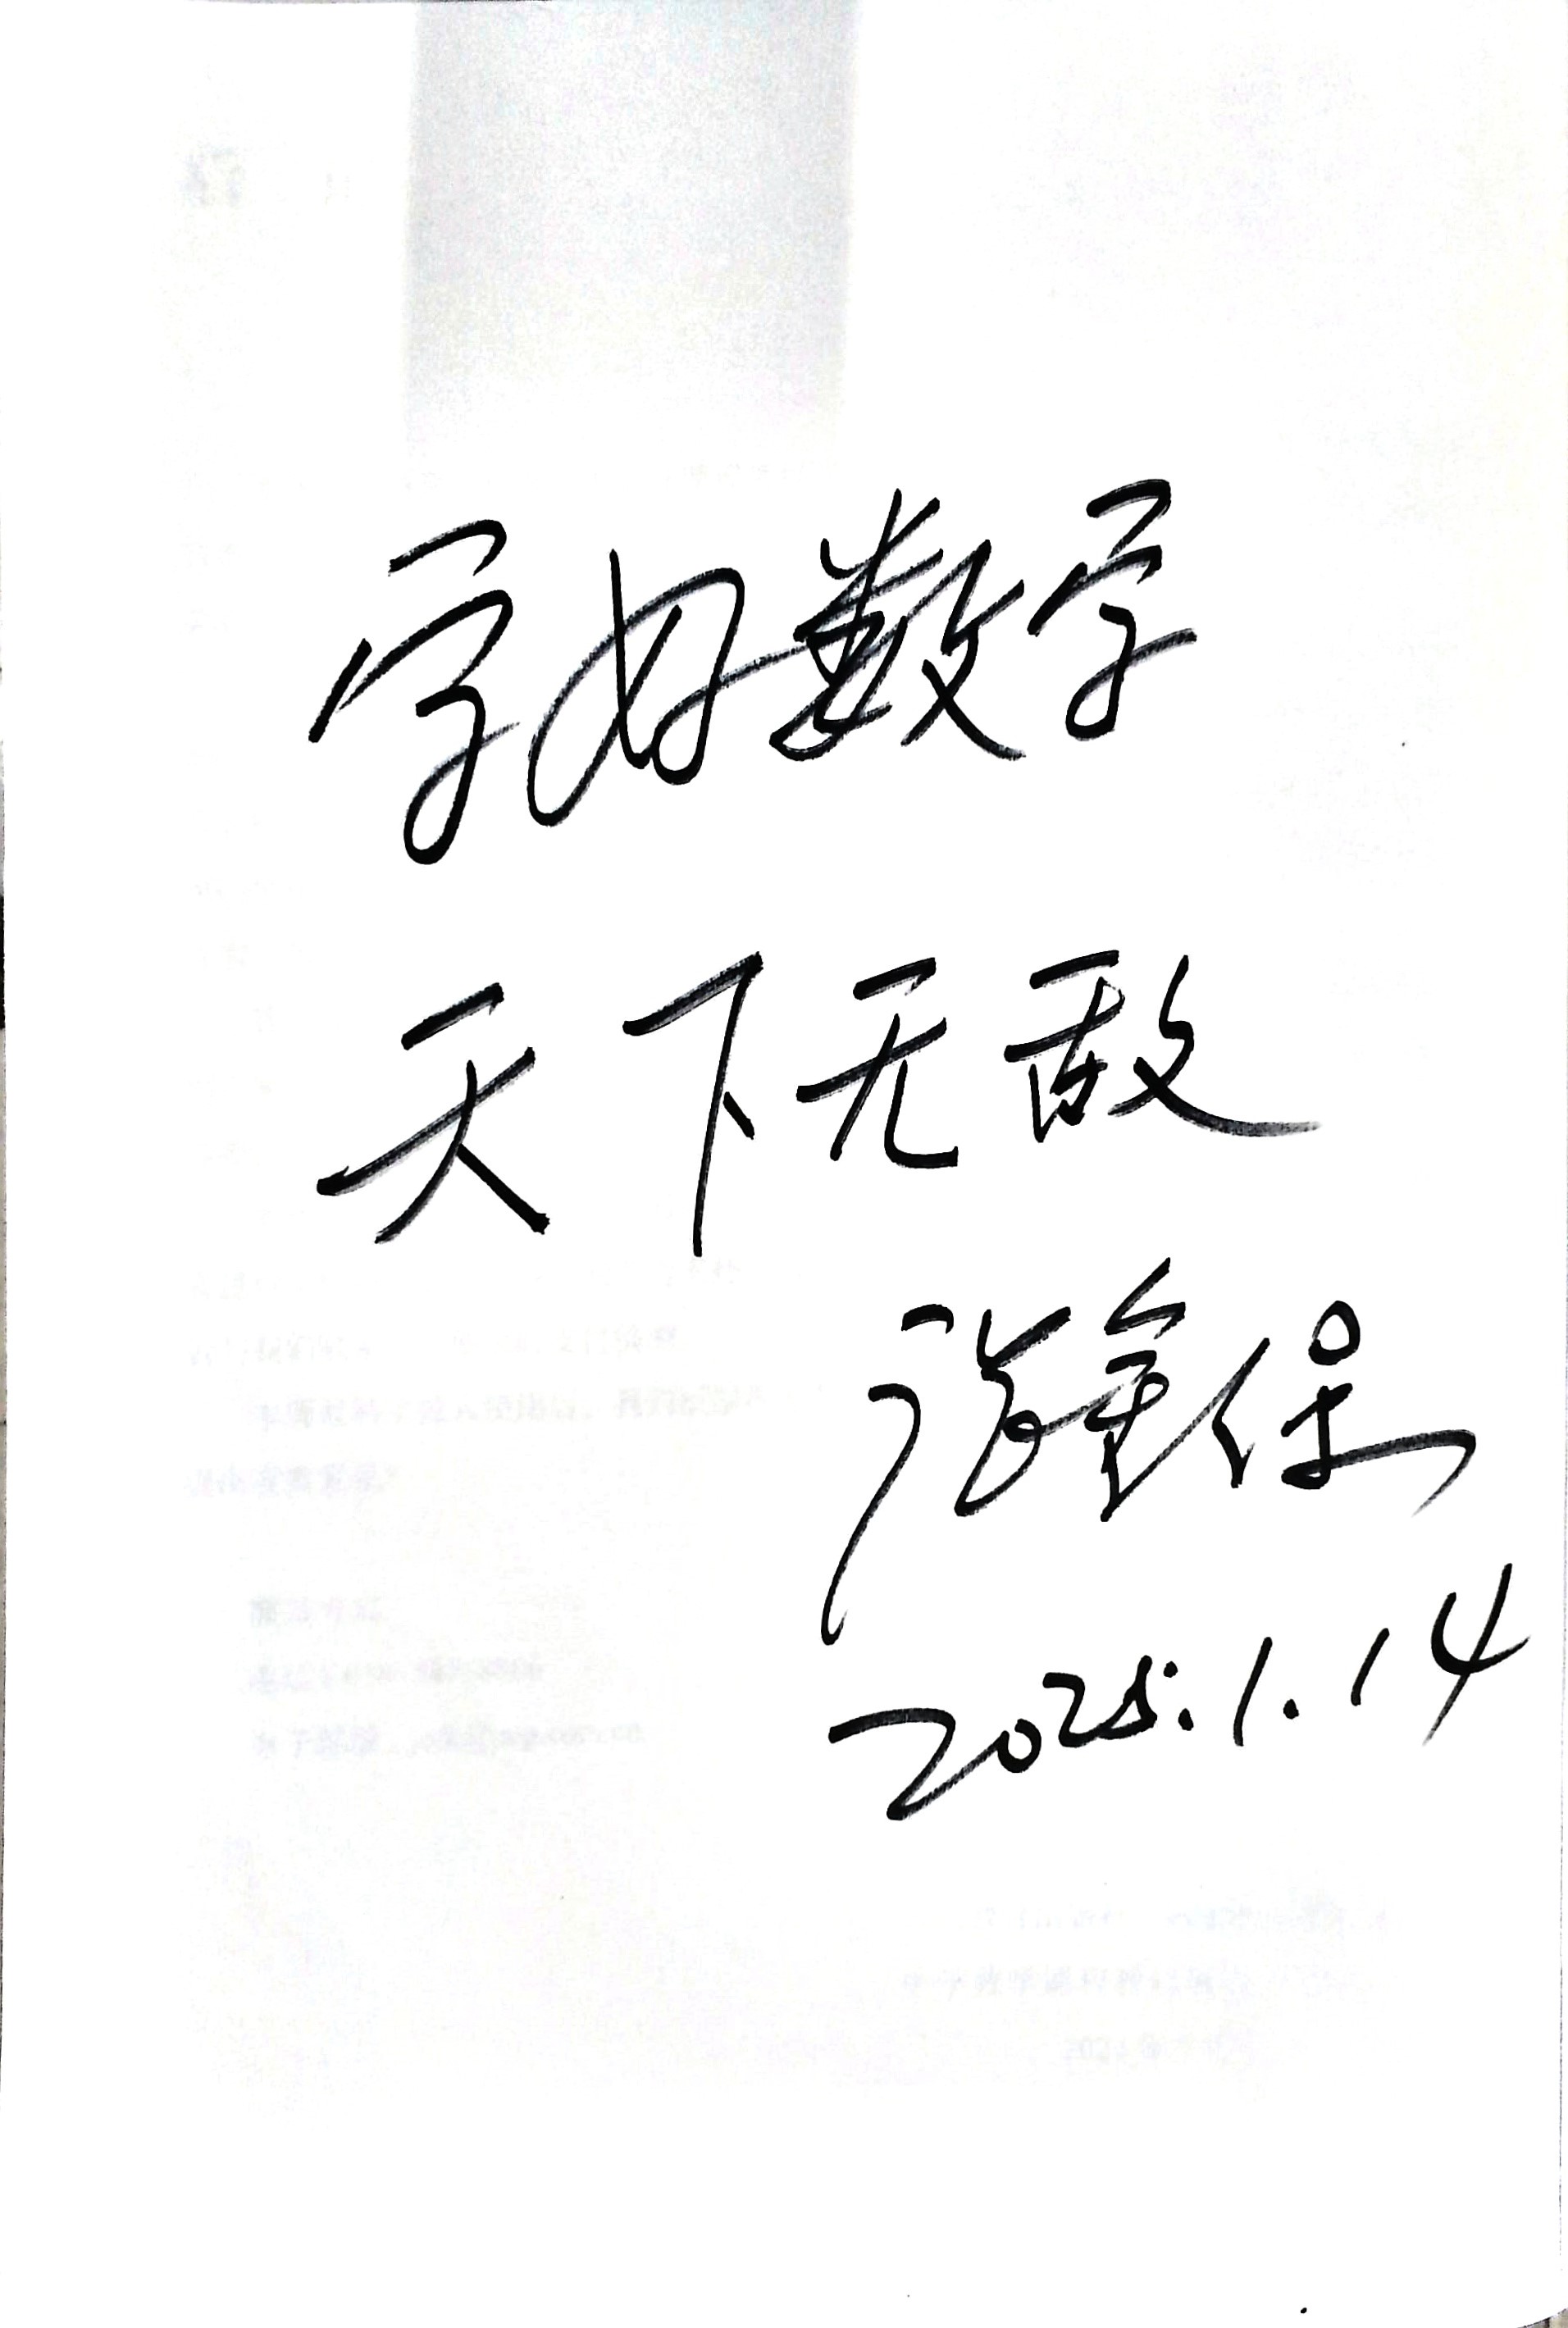 学好数学
天下无敌
2025.1.14